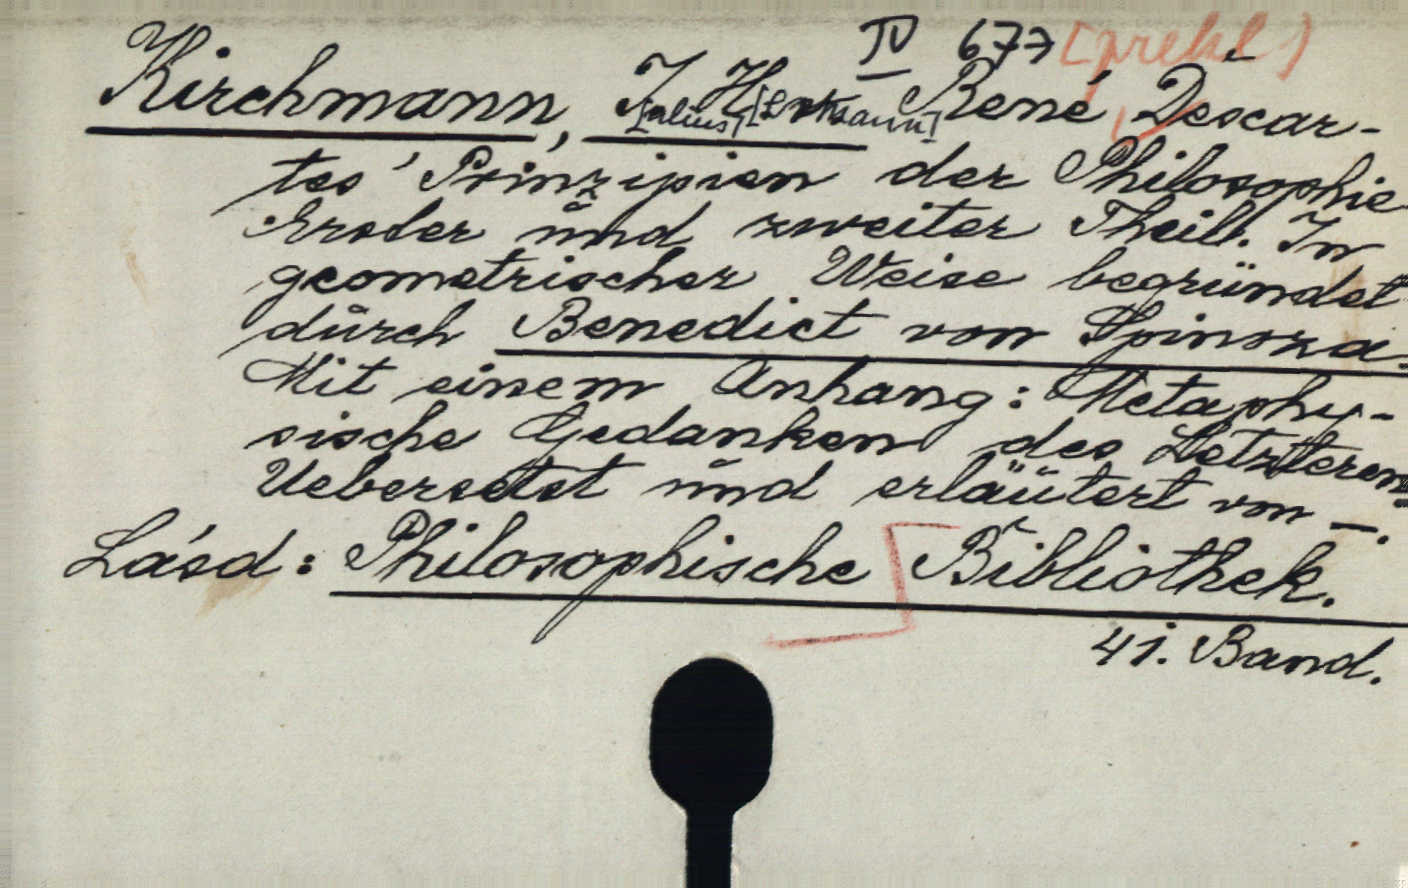 IV 677
Kirchmann, J. H. René Descar-
[ulius] [
tes' Prinzipien der Philosophie
Erster und zweiter Theil. In
geometrischer Weise begründet
durch Benedict von Spinoza.
Mit einem Anhang: Metaphy-
sische Gedanken des Letzteren.
Uebersetzt und erläutert von —.
Lásd: Philosophische Bibliothek.
41. Band.